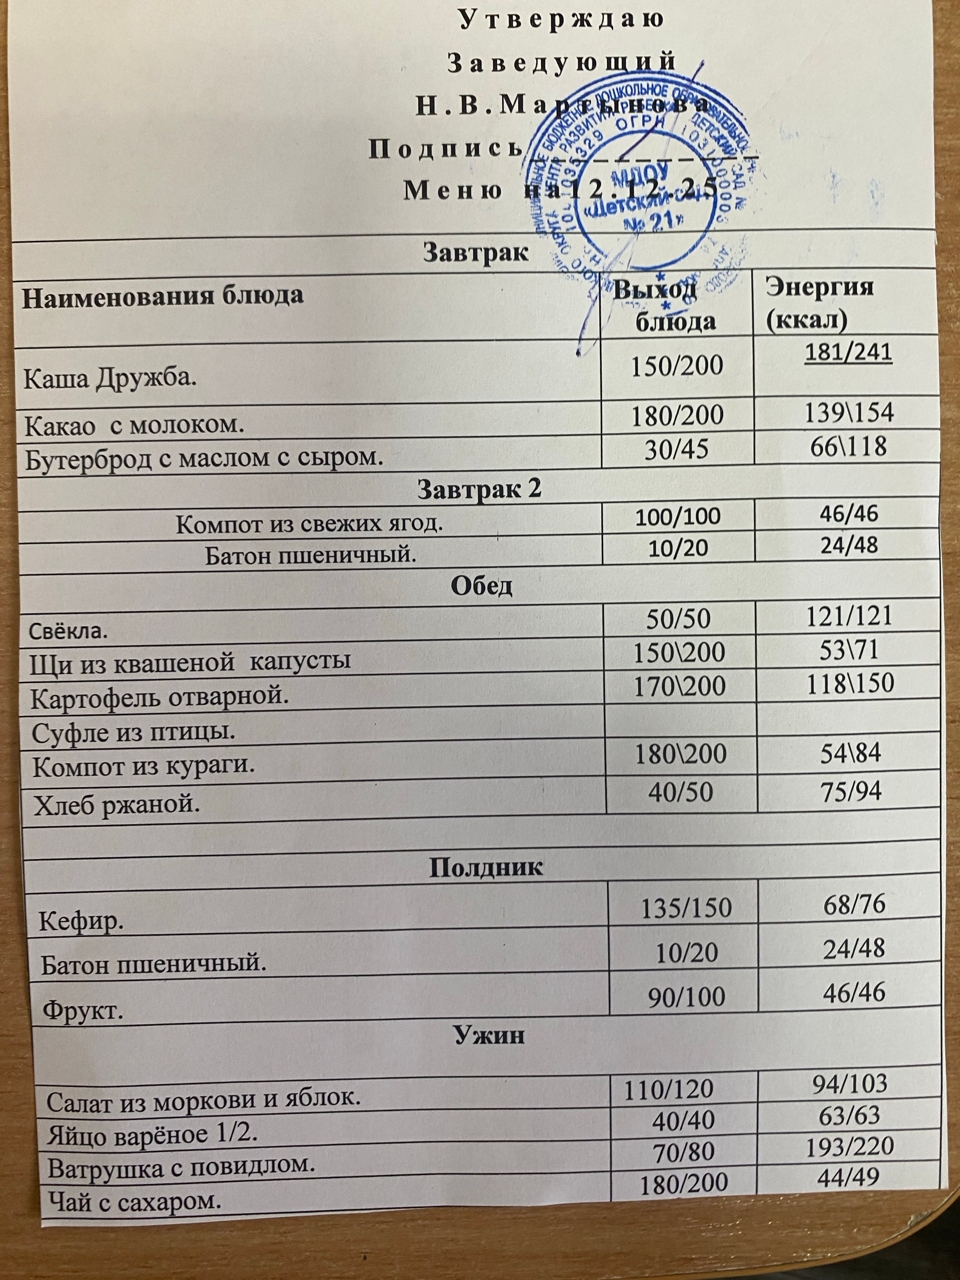 Утверждаю
Заведующий
Н.В.Мартынова
Подпись_____________
Меню на12.12.25
МДОУ
«Детский сад
№ 21»
Завтрак
Наименования блюда Выход блюда Энергия (ккал)
Каша Дружба. 150/200 181/241
Какао с молоком. 180/200 139\154
Бутерброд с маслом с сыром. 30/45 66\118
Завтрак 2
Компот из свежих ягод. 100/100 46/46
Батон пшеничный. 10/20 24/48
Обед
Свёкла. 50/50 121/121
Щи из квашеной капусты 150\200 53\71
Картофель отварной. 170\200 118\150
Суфле из птицы.
Компот из кураги. 180\200 54\84
Хлеб ржаной. 40/50 75/94
Полдник
Кефир. 135/150 68/76
Батон пшеничный. 10/20 24/48
Фрукт. 90/100 46/46
Ужин
Салат из моркови и яблок. 110/120 94/103
Яйцо варёное 1/2. 40/40 63/63
Ватрушка с повидлом. 70/80 193/220
Чай с сахаром. 180/200 44/49